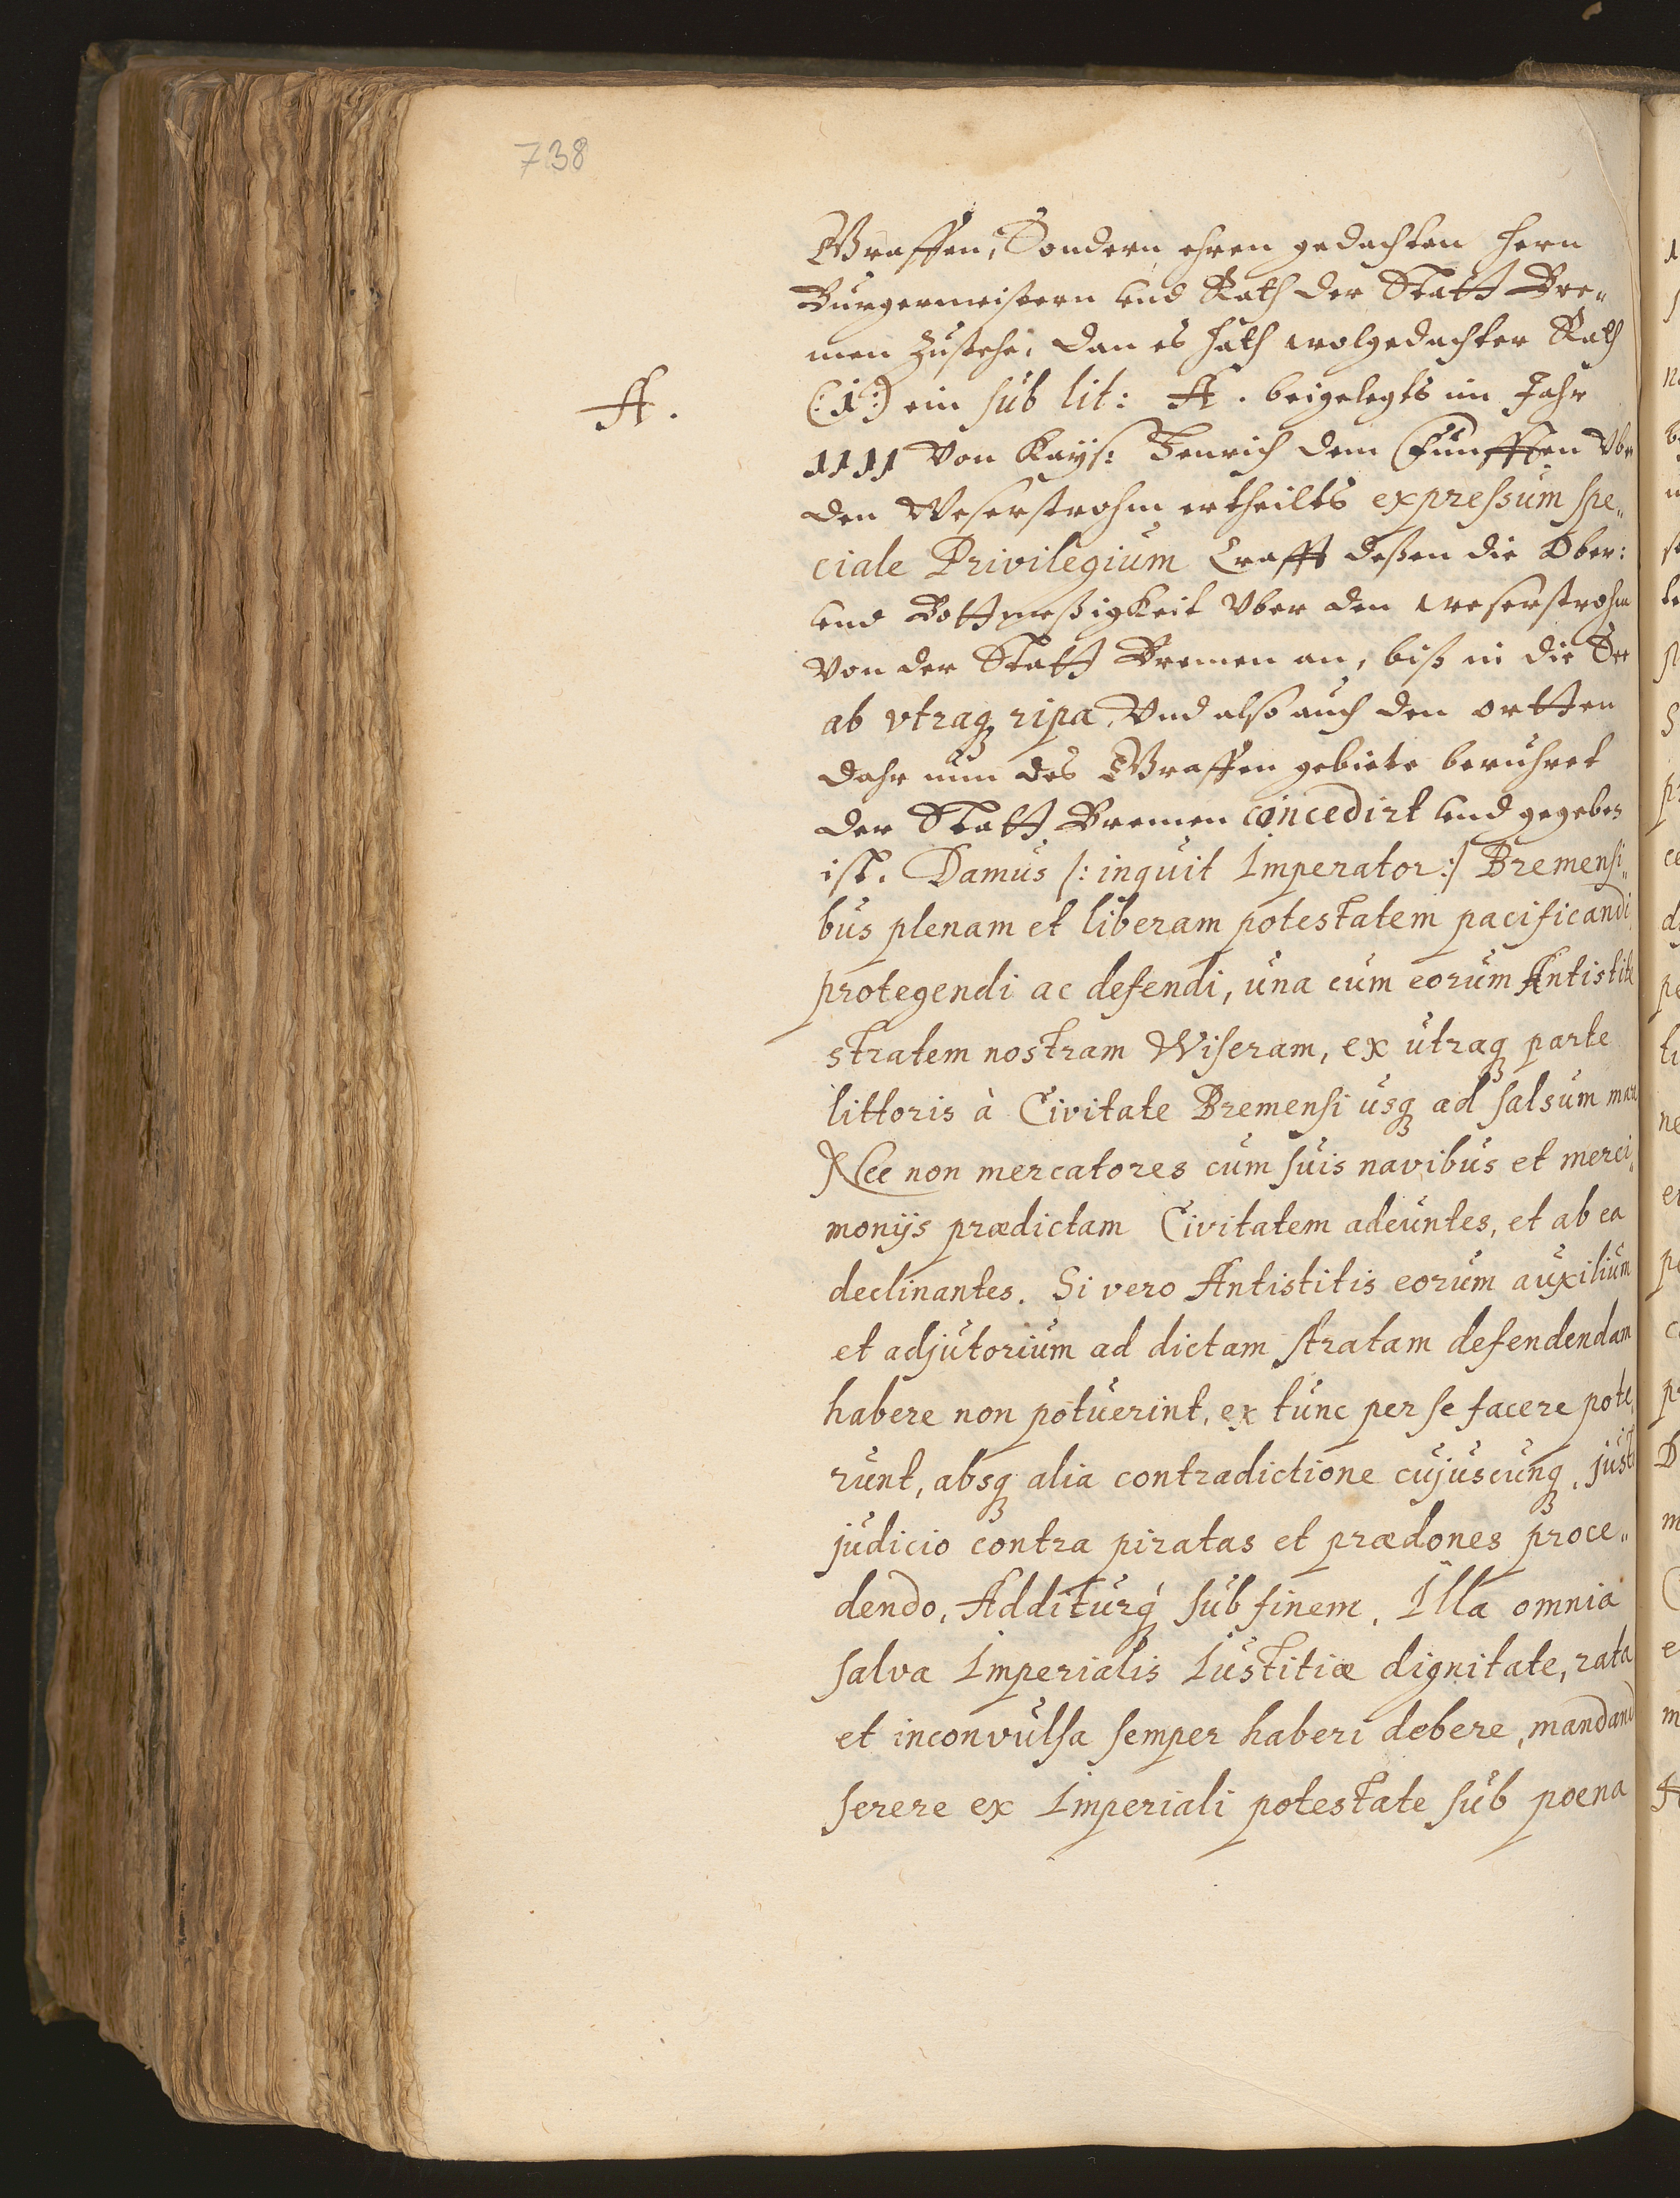 738
Graffen, Sondern ehren gedachten Hern
Burgermeistern und Rath der Statt Bre„
men Zustehe, dan es hath wolgedachter Rath
A.
(:1:) ein sub lit: A. beigelegts im Jahr
1111 von Kays: Henrich dem Fünfften Vber
den Weserstrohm ertheilts expressum spe„
ciale Privilegium Crafft deßen die Ober:
und Bottmeßigkeit Vber den weserstrohm
von der Statt Bremen an, biß in die See
ab vtraq ripa, Vnd also auch den ortten
dahr nun des Graffen gebiete beruhret
der Statt Bremen concedirt und gegeben
ist. Damus /: inquit Imperator :/ Bremensi„
bus plenam et liberam potestatem pacificandi
protegendi ac defendi, una cum eorum Antistite
stratem nostram Wiseram, ex utraq parte
littoris à Civitate Bremensi usq ad salsum mare
Nec non mercatores cum suis navibus et merci„
moniis prædictam Civitatem adeuntes, et ab ea
declinantes. Si vero Antistitis eorum auxilium
et adjutorium ad dictam stratam defendendam
habere non potuerint, ex tunc per se facere pote„
runt, absq alia contradictione cujuscunq, justo
judicio contra piratas et prædones proce„
dendo, Additurq sub finem, Illa omnia
salva Imperialis Iustitiæ dignitate, rata
et inconvulsa semper haberi debere, mandand
serere ex Imperiali potestate sub poena